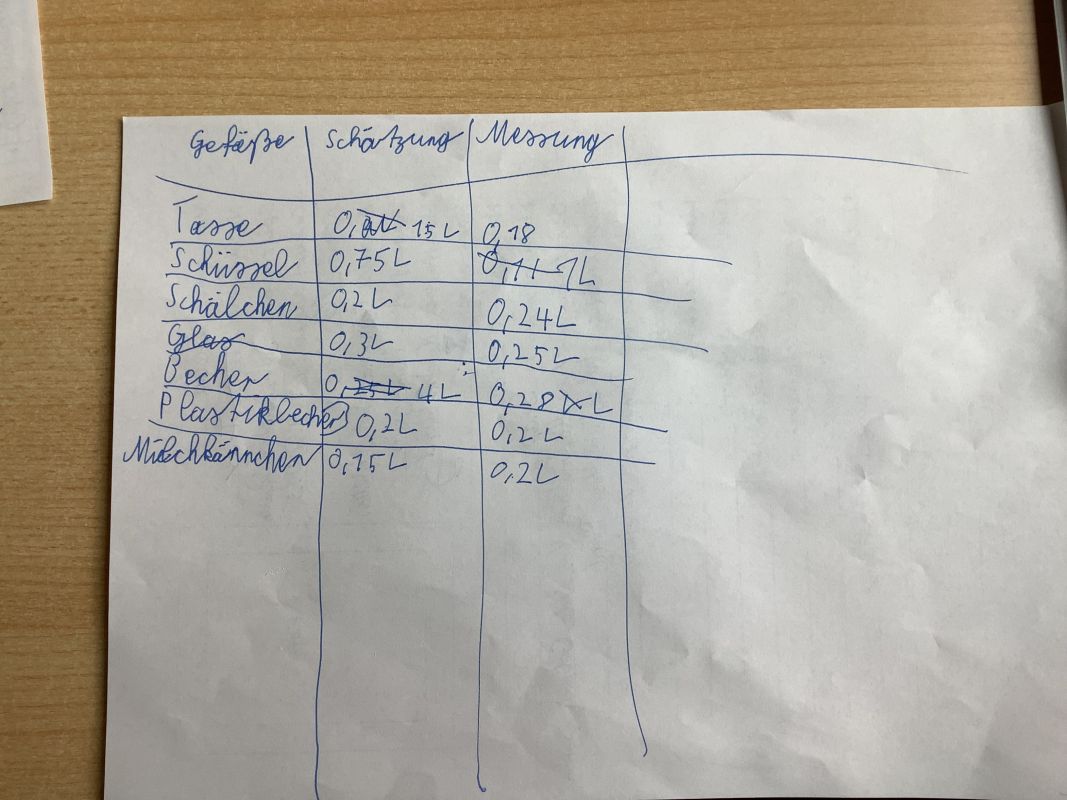 Gefäße Schätzung Messung
Tasse 0,15L 0,18
Schüssel 0,75L 1L
Schälchen 0,2L 0,24L
Glas 0,3L 0,25L
Becher 0,4L 0,28L
Plastikbecher 0,2L 0,2L
Milchkännchen 0,15L 0,2L